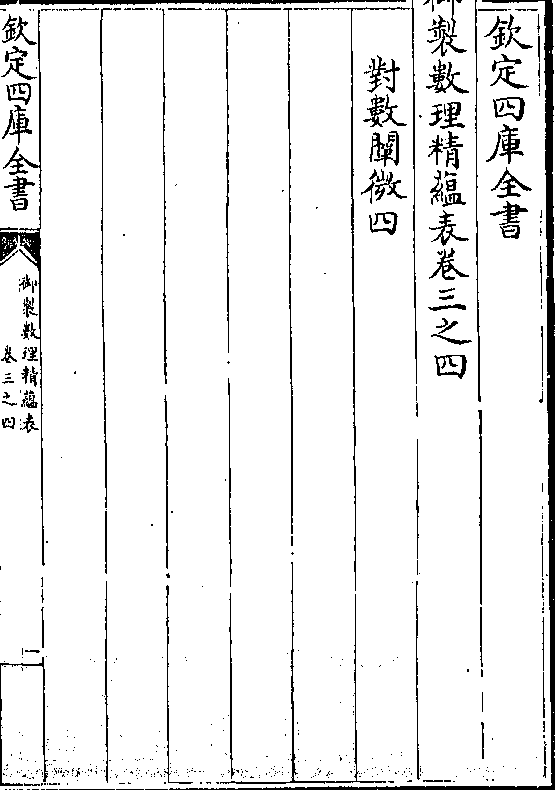 欽定四庫全書
御製數理精蘊表卷三之四
對數闡微四
欽定四庫全書
御製數理精蘊表
卷三之四
一